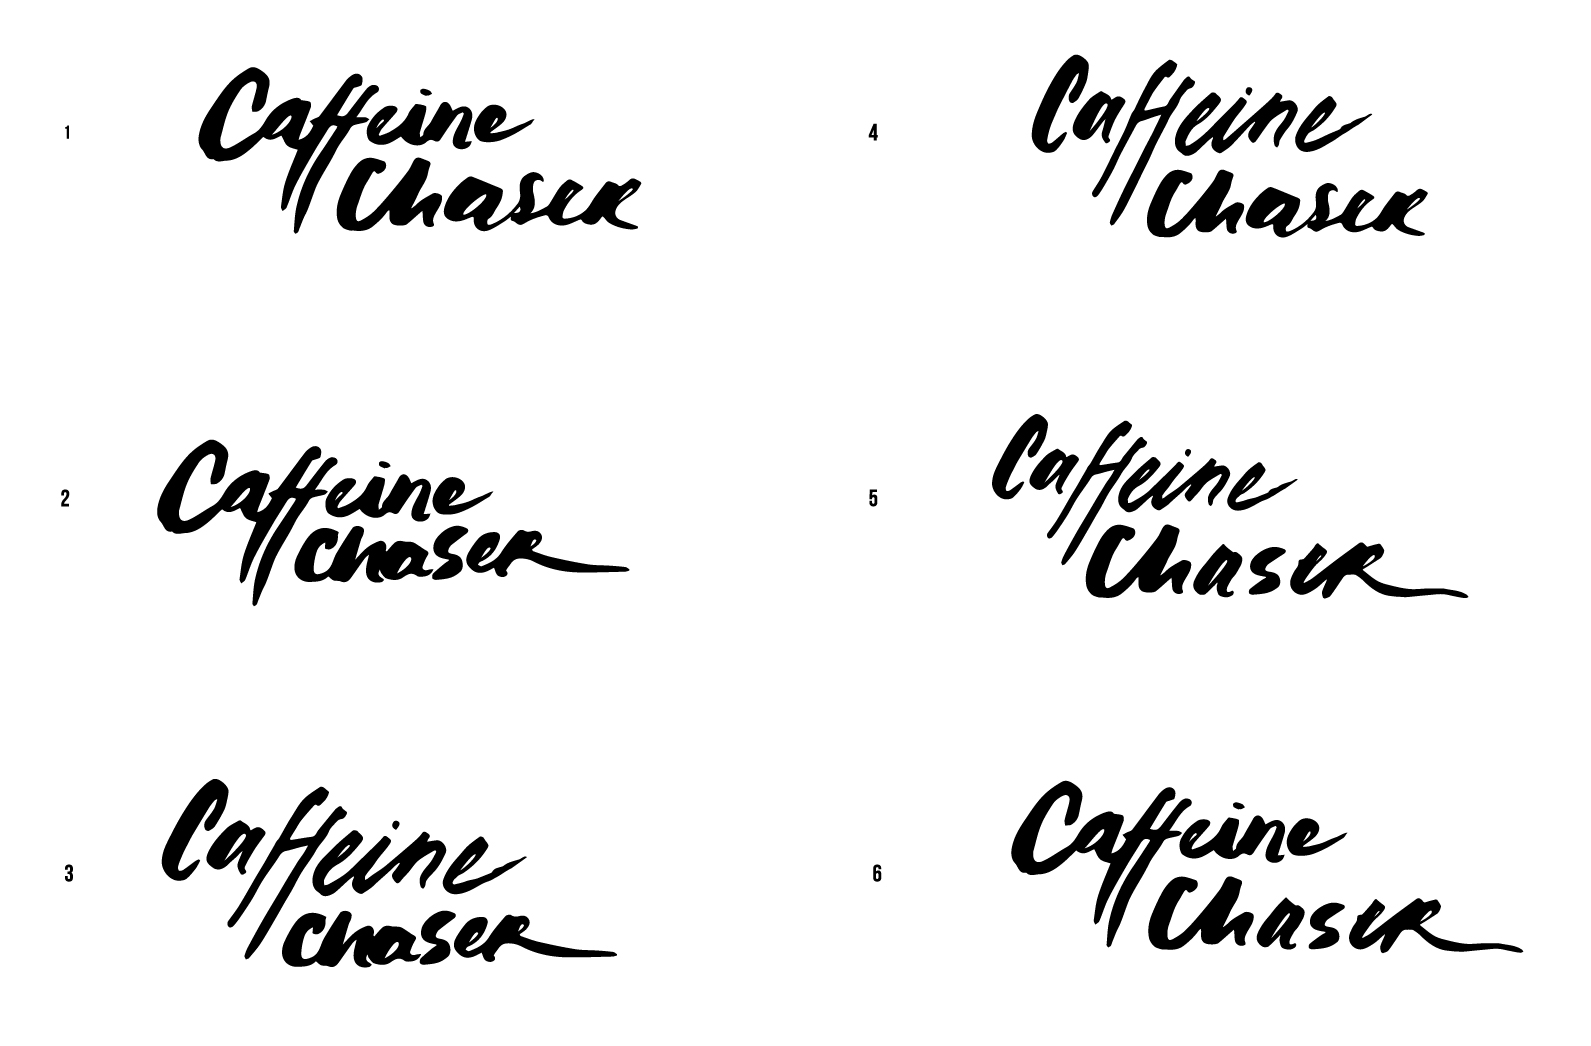 1
Caffeine
Chaser
2
Caffeine
chaser
3
Caffeine
chaser
4
Caffeine
Chaser
5
Caffeine
Chaser
6
Caffeine
Chaser